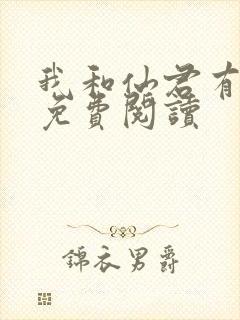 我和仙君有
免費閱讀
錦衣男爵